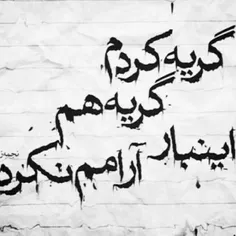 گریه کردم
گریه هم
اینبار
آرامم نکرد